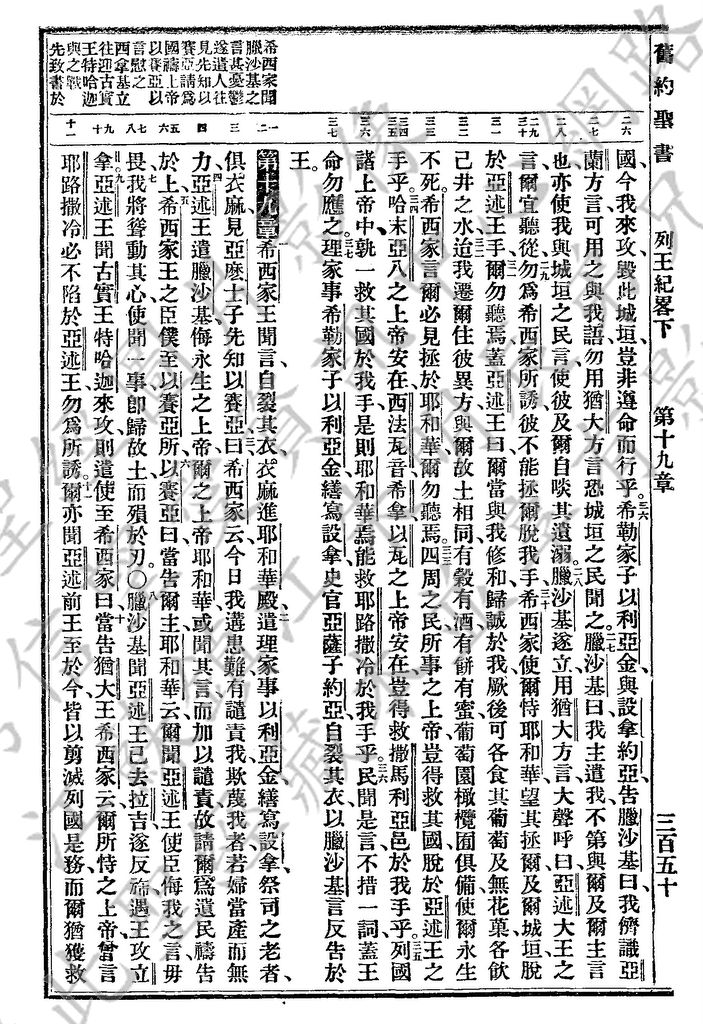 舊約聖書 列王紀畧下 第十九章 三百五十
二六 國今我來攻毀此城垣豈非遵命而行乎希勒家子以利亞金與設拿約亞告臘沙基曰我儕識亞
二七 蘭方言可用之與我語勿用猶大方言恐城垣之民聞之臘沙基曰我主遣我不第與爾及爾主言
二八 也亦使我與城垣之民言使彼及爾自啖其遺溺臘沙基遂立用猶大方言大聲呼曰亞述大王之
二九 三十 言爾宜聽從勿爲希西家所誘彼不能拯爾脫我手希西家使爾恃耶和華望其拯爾及爾城垣脫
三一 於亞述王手爾勿聽焉蓋亞述王曰爾當與我修和歸誠於我厥後可各食其葡萄及無花菓各飲
三二 己井之水迨我遷爾住彼異方與爾故土相同有穀有酒有餅有蜜葡萄園橄欖囿俱備使爾永生
三三 不死希西家言爾必見拯於耶和華爾勿聽焉四周之民所事之上帝豈得救其國脫於亞述王之
三四 三五 手乎哈末亞八之上帝安在西法瓦音希拿以瓦之上帝安在豈得救撒馬利亞邑於我手乎列國
三六 諸上帝中孰一救其國於我手是則耶和華焉能救耶路撒冷於我手乎民聞是言不措一詞蓋王
三七 命勿應之理家事希勒家子以利亞金繕寫設拿史官亞薩子約亞自裂其衣以臘沙基言反告於
王
希西家聞
臘沙基之
言其憂鬱
遂遣人往
見先知以
賽亞請爲
國禱上帝
以賽亞以
言慰之
西拿基立
往迎古實
王特哈迦
與之戰
先致書於
一 二 第十九章希西家王聞言自裂其衣衣麻進耶和華殿遣理家事以利亞金繕寫設拿祭司之老者
三 俱衣麻見亞麼士子先知以賽亞曰希西家云今日我遘患難有譴責我欺蔑我者若婦當產而無
四 力亞述王遣臘沙基侮永生之上帝爾之上帝耶和華或聞其言而加以譴責故請爾爲遺民禱告
五 六 於上希西家王之臣僕至以賽亞所以賽亞曰當告爾主耶和華云爾聞亞述王使臣侮我之言毋
七 八 畏我將聳動其心使聞一事卽歸故土而殞於刃〇臘沙基聞亞述王已去拉吉遂反䄎遇王攻立
九 十 拿亞述王聞古實王特哈迦來攻則遣使至希西家曰當告猶大王希西家云爾所恃之上帝嘗言
十一 耶路撒冷必不陷於亞述王勿爲所誘爾亦聞亞述前王至於今皆以剪滅列國是務而爾猶獲救